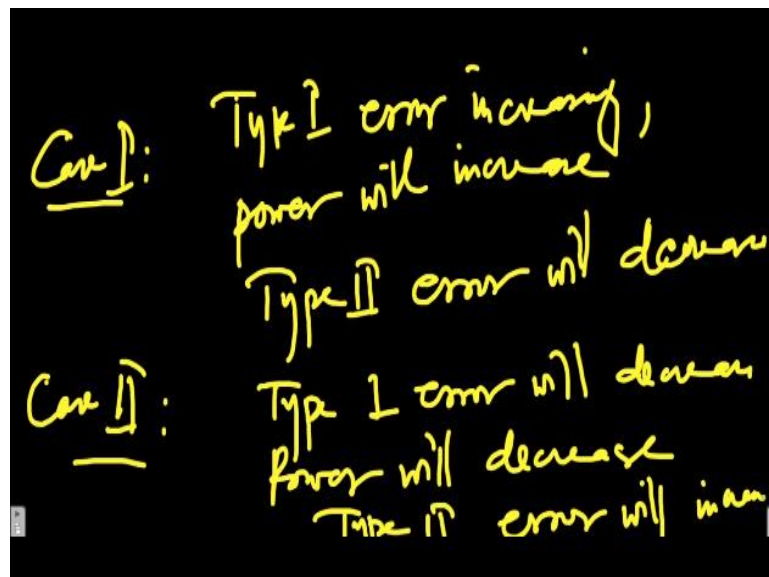 Case I: Type I error increasing,
power will increase
Type II error will decrease
Case II: Type I error will decrease
Power will decrease
Type II error will increase